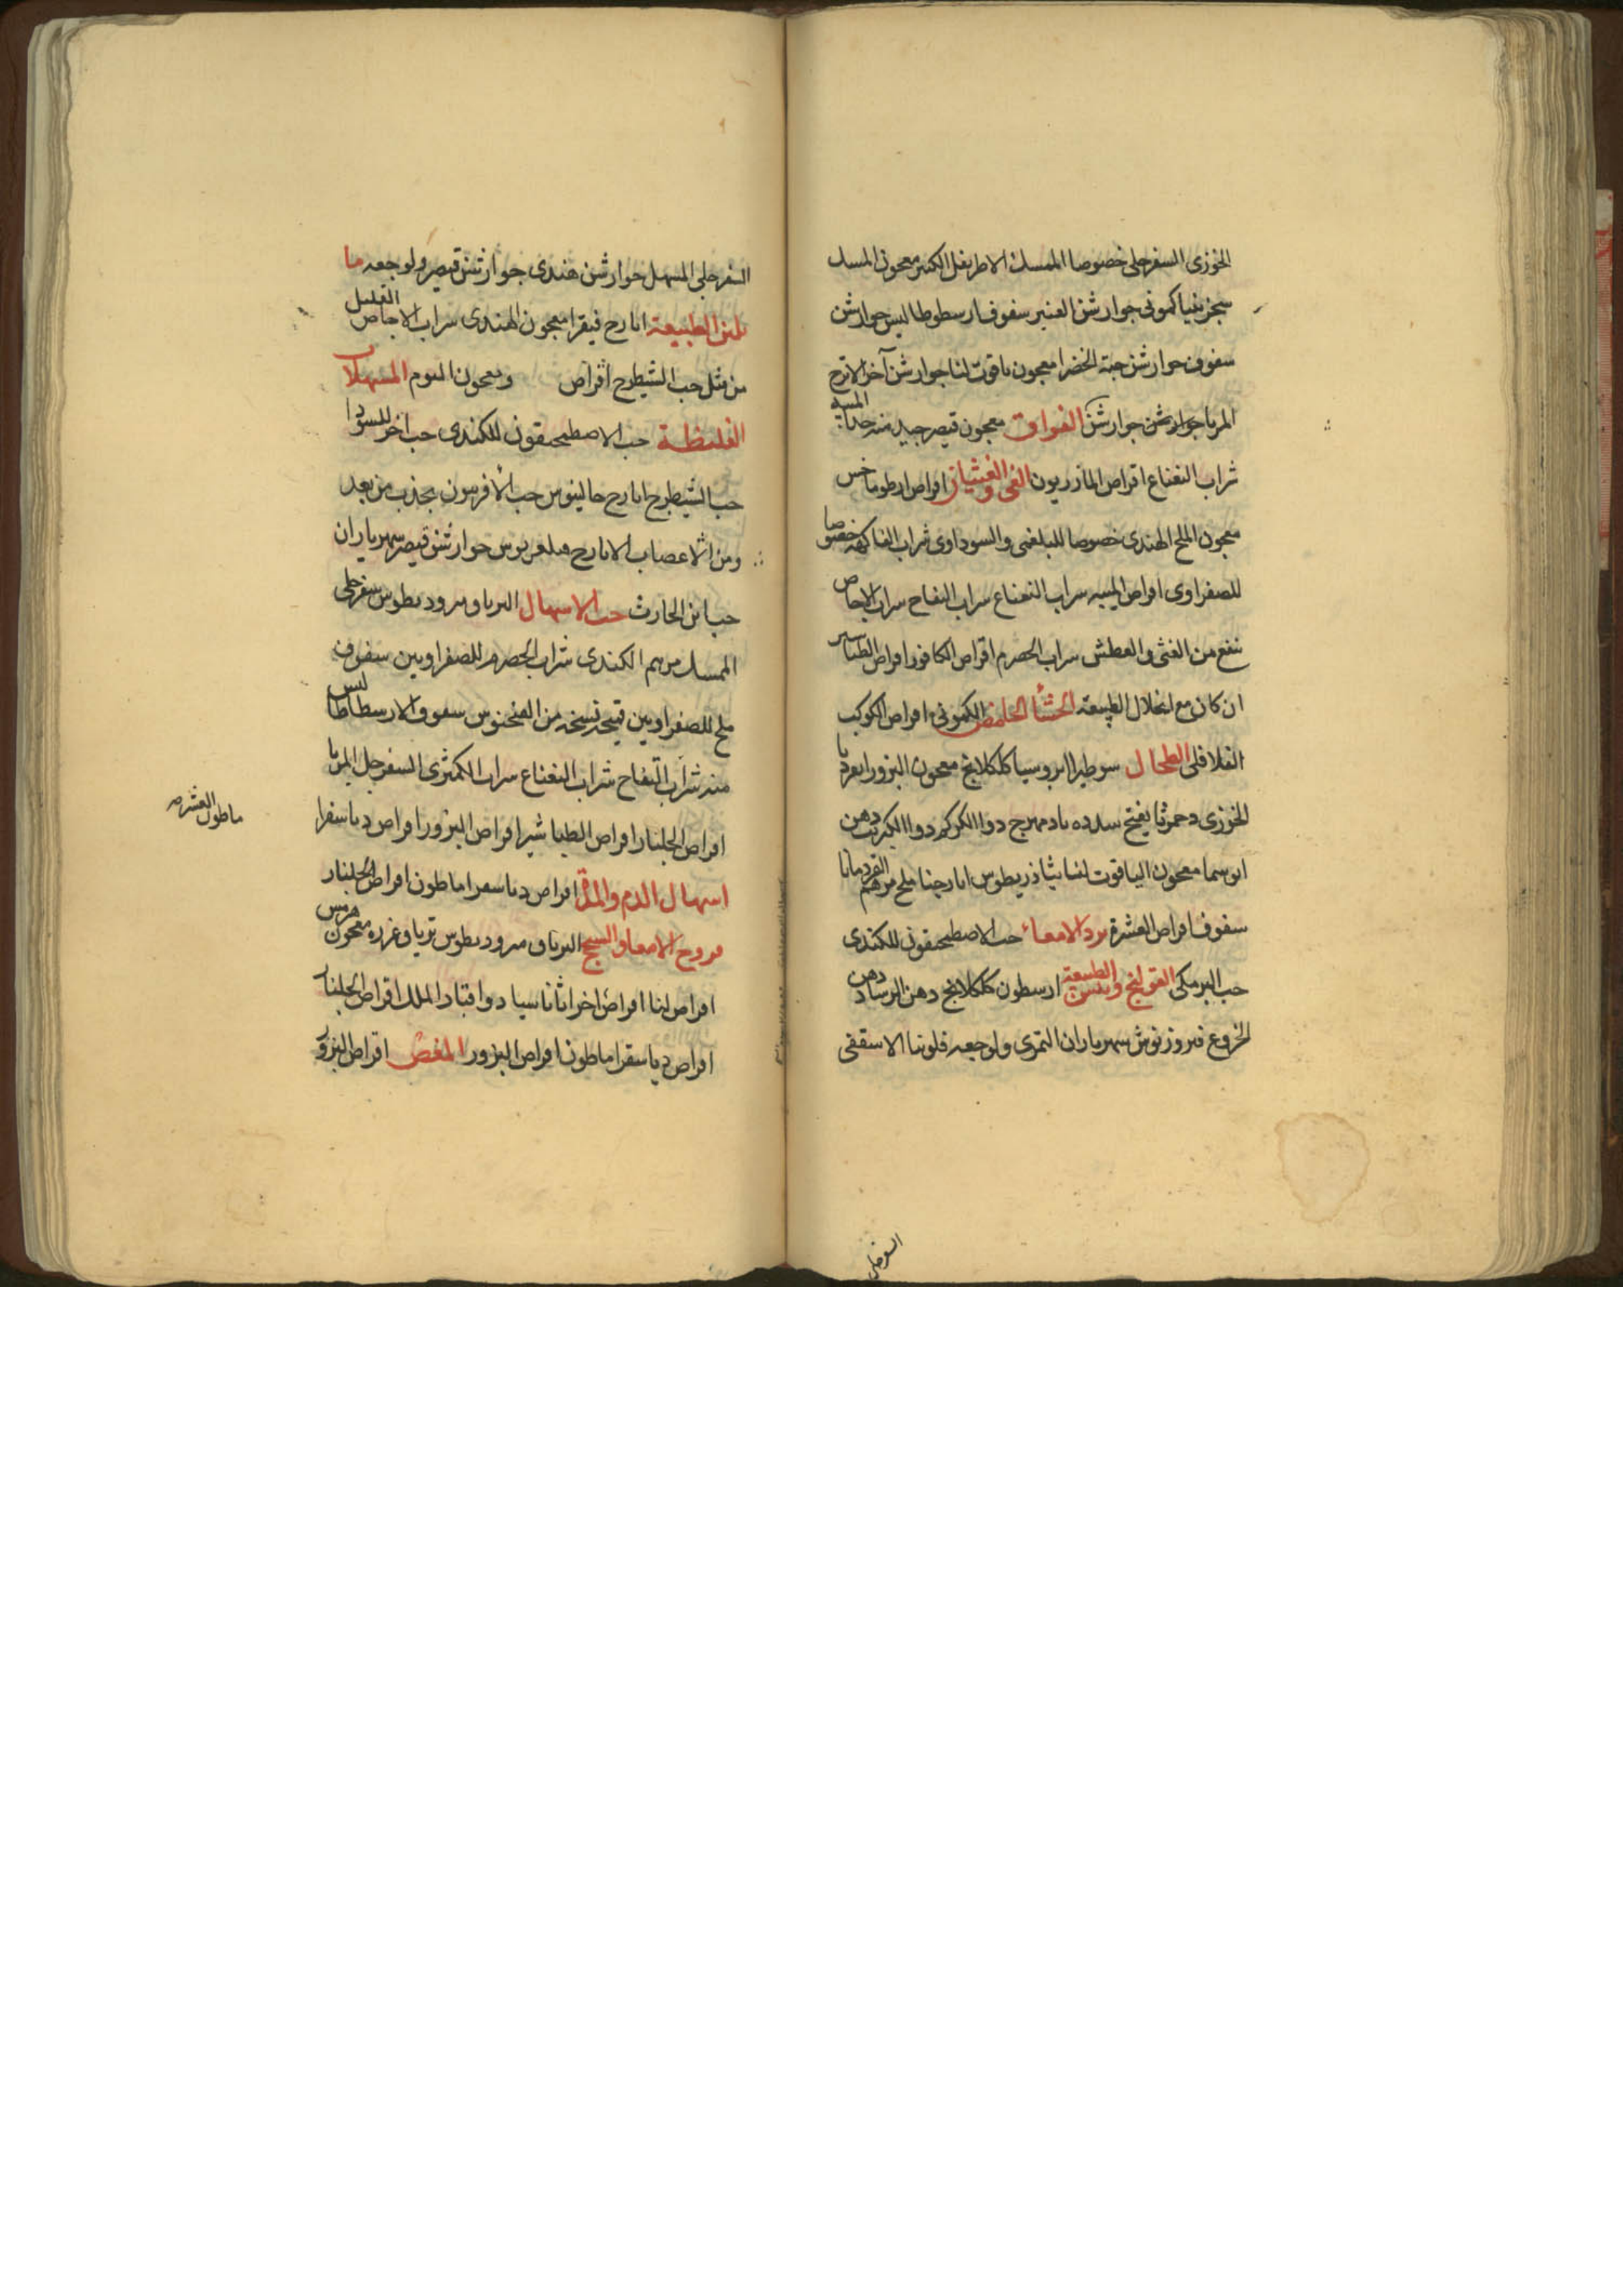 الخوزى السفرجلى خصوصا الممسك الاطريفل الكبير معجون المسك
سجزينيا كمونى جوارشن العنبر سفوف ارسطوطاليس جوارشن
سفوف جوارشن حبة الخضرا معجون ياقوت لنا جوارشن آخر الاترج
المربا جوارشن جوارشن الفواق معجون قيصر جيد منه جدا الميبه
شراب النعناع اقراص المازريون القى والغثيان اقراص ارطوماخس
معجون الملح الهندى خصوصا للبلغمى والسوداوى شراب الفاكهه خصوصا
للصفراوى اقراص الميبه سراب النعناع سراب التفاح سراب الاجاص
ينفع من الغثى والعطش سراب الحصرم اقراص الكافور اقراص الطباسير
ان كان مع انحلال الطبيعة الجشأ الحامض الكمونى اقراص الكوكب
الفلافلى الطحال سوطيرا كلكلانج معجون البزور
الخوزى دحمرثا يفتح سدده بادمهرج دوا الكركم دوا الكبريت دهن
معجون الياقوت لنا ايارجنا ملح مرهم القردمانا
سفوف اقراص العشرة برد الامعاء حب الاصطمحيقون للكندى
حب البرمكى القولنج ويبس الطبيعة ارسطون كلكلانج دهن الرساد دهن
الخروع فيروزنوش سهرياران التمرى ولوجعه فلونيا الاسقفى
السفرجلى
السفرجلى المسهل جوارشن هندى جوارشن قيصر ولوجعه ما
يلين الطبيعة ايارج فيقرا معجون الهندى سراب الاجاص القليل
من مثل حب الشيطرج اقراص ومعجون الثوم المسهلات
الغليظة حب الاصطمحيقون للكندى حب اخر للسودا
حب الشيطرج ايارج جالينوس حب الافربيون يجذب من بعد
ومن الاعصاب الايارج جوارشن قيصر سهرياران
حب ابن الحارث حب الاسهال الترياق مثروديطوس سفرجلى
الممسك مرهم الكندى شراب الحصرم للصفراويين سفوف
ملح للصفراويين نسخه من سفوف الارسطاطاليس
منه شراب التفاح شراب النعناع سراب الكمثرى السفرجل المربا
اقراص الجلنار اقراص الطباشير اقراص البزور اقراص دياسقرا
اسهال الدم والمدة اقراص دياسقرا ماطون اقراص الجلنار
قروح الامعا والسحج الترياق مثروديطوس ترياق عزره معجون هرمس
اقراص لنا اقراص اخر اثاناسيا دوا قباد الملك اقراص الجلنار
اقراص دياسقرا ماطون اقراص البزور المغص اقراص البزور